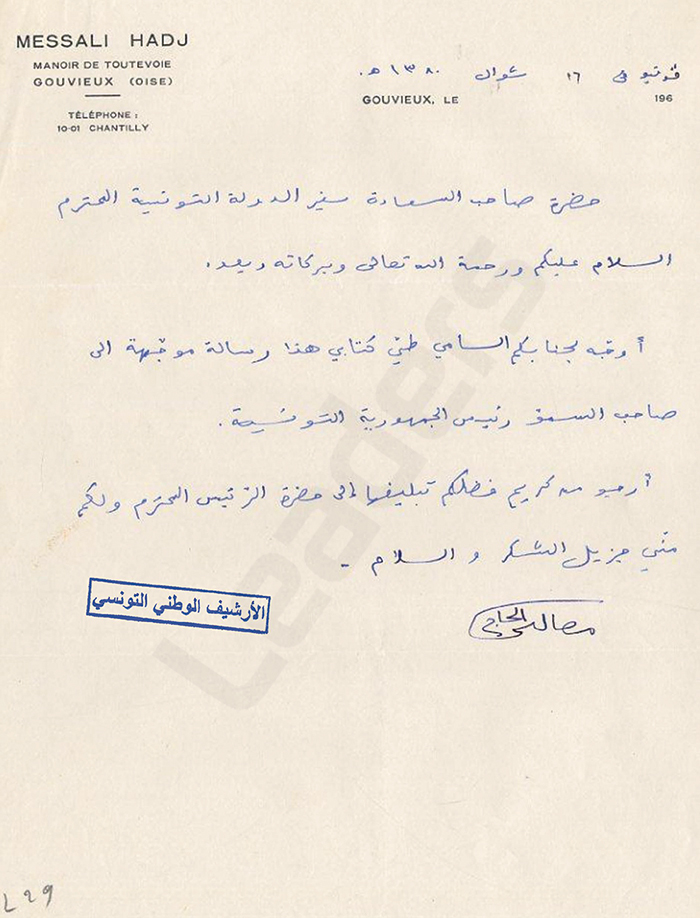 MESSALI HADJ
MANOIR DE TOUTEVOIE
GOUVIEUX (OISE)
TÉLÉPHONE :
10-01 CHANTILLY
ڤوڤيو في ١٦ شوال ١٣٨٠ هـ.
GOUVIEUX, LE 196
حضرة صاحب السعادة سفير الدولة التونسية المحترم
السلام عليكم ورحمة الله تعالى وبركاته وبعد.
أوجّه لجنابكم السامي طيّ كتابي هذا رسالة موجّهة الى
صاحب السموّ رئيس الجمهورية التونسية.
أرجو من كريم فضلكم تبليغها إلى حضرة الرّئيس المحترم ولكم
منّي جزيل الشكر و السلام -
مصالي الحاج
الأرشيف الوطني التونسي
Leaders
L 29